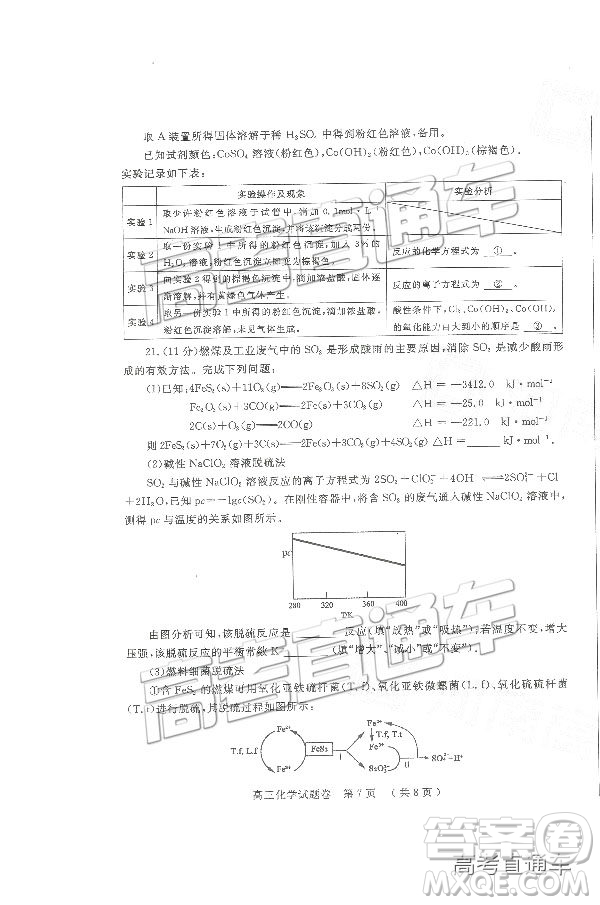 取 A 装置所得固体溶解于稀 H₂SO₄ 中得到粉红色溶液，备用。
已知试剂颜色：CoSO₄ 溶液（粉红色），Co(OH)₂（粉红色），Co(OH)₃（棕褐色）。
实验记录如下表：
实验操作及现象 实验分析
实验 1 取少许粉红色溶液于试管中，滴加 0.1mol·L⁻¹
NaOH 溶液，生成粉红色沉淀，并将溶液
实验 2 取一份实验 1 中所得的粉红色沉淀，加入 3% 的
H₂O₂ 溶液，粉红色沉淀立即变为棕褐色。 反应的化学方程式为 ① 。
实验 3 向实验 2 得到的棕褐色沉淀中，滴加浓盐酸，固体逐
渐溶解，并有黄绿色气体产生。 反应的离子方程式为 ② 。
实验 4 取另一份实验 1 中所得的粉红色沉淀，滴加浓盐酸，
粉红色沉淀溶解，未见气体生成。 酸性条件下，Cl₂、Co(OH)₂、Co(OH)₃
的氧化能力由大到小的顺序是 ③ 。
21.(11 分)燃煤及工业废气中的 SO₂ 是形成酸雨的主要原因，消除 SO₂ 是减少酸雨形
成的有效方法。完成下列问题：
(1)已知：4FeS₂(s)+11O₂(g)══2Fe₂O₃(s)+8SO₂(g) △H = −3412.0 kJ·mol⁻¹
Fe₂O₃(s)+3CO(g)══2Fe(s)+3CO₂(g) △H = −25.0 kJ·mol⁻¹
2C(s)+O₂(g)══2CO(g) △H = −221.0 kJ·mol⁻¹
则 2FeS₂(s)+7O₂(g)+3C(s)══2Fe(s)+3CO₂(g)+4SO₂(g) △H =
(2)碱性 NaClO₂ 溶液脱硫法
SO₂ 与碱性 NaClO₂ 溶液反应的离子方程式为 2SO₂+ClO₂⁻+4OH⁻⇌2SO₄²⁻+Cl⁻
+2H₂O，已知 pc = −lgc(SO₂)。在刚性容器中，将含 SO₂ 的废气通入碱性 NaClO₂ 溶液中，
测得 pc 与温度的关系如图所示。
pc
280 320 360 400
T/K
由图分析可知，该脱硫反应是 反应(填“放热”或“吸热”)；若温度不变，增大
压强，该脱硫反应的平衡常数 K (填“增大”、“减小”或“不变”)。
(3)燃料细菌脱硫法
①含 FeS₂ 的燃煤可用氧化亚铁硫杆菌(T.f)、氧化亚铁微螺菌(L.f)、氧化硫硫杆菌
(T.t)进行脱硫，其脱硫过程如图所示：
Fe²⁺ Fe³⁺
T.f, L.f FeS₂ I T.f, T.t II SO₄²⁻+H⁺
Fe³⁺ S₂O₃²⁻
高三化学试题卷 第 7 页 （共 8 页）
高考直通车
答案圈
高考直通车
MXQE.COM